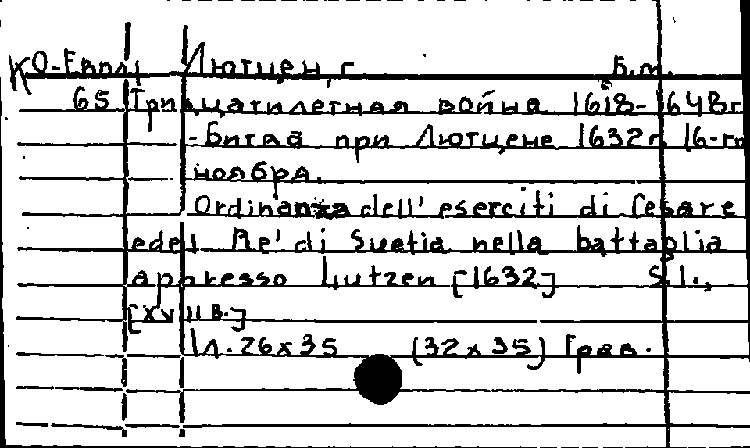 КО-Европ Лютцен, г. Б.м.
65 Тридцатилетная война 1618-1648г
- Битва при Лютцене 1632г. 16-го
ноября.
Ordinanza dell' eserciti di Cesare
e del Re' di Suetia nella battaglia
appresso Lutzen [1632] S.l.,
[XVII в.]
1л. 26x35 (32x35) Грав.